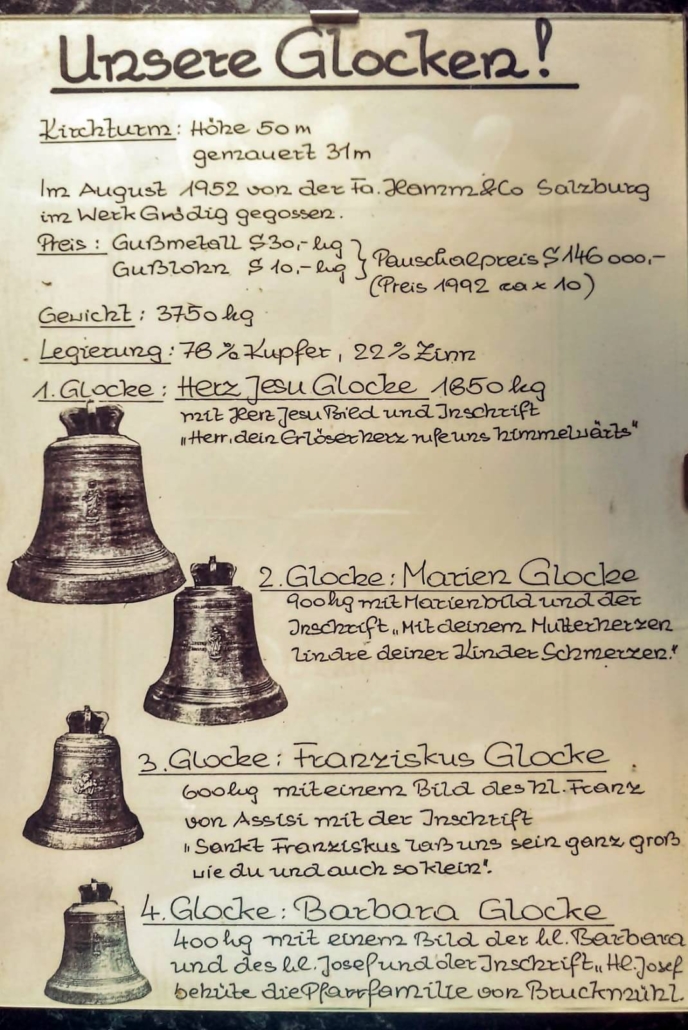 Unsere Glocken!
Kirchturm: Höhe 50 m
gemauert 31m
Im August 1952 von der Fa. Hamm&Co Salzburg
im Werk Grödig gegossen.
Preis: Gußmetall S 30,- kg } Pauschalpreis S 146 000,-
Gußlohn S 10,- kg (Preis 1992 ca x 10)
Gewicht: 3750 kg
Legierung: 78 % Kupfer, 22 % Zinn
1. Glocke: Herz Jesu Glocke 1850 kg
mit Herz Jesu Bild und Inschrift
„Herr, dein Erlöserherz rufe uns himmelwärts"
2. Glocke: Marien Glocke
900 kg mit Marienbild und der
Inschrift „Mit deinem Mutterherzen
lindre deiner Kinder Schmerzen."
3. Glocke: Franziskus Glocke
600 kg mit einem Bild des hl. Franz
von Assisi mit der Inschrift
„Sankt Franziskus laß uns sein ganz groß
wie du und auch so klein".
4. Glocke: Barbara Glocke
400 kg mit einem Bild der hl. Barbara
und des hl. Josef und der Inschrift „Hl. Josef
behüte die Pfarrfamilie von Bruckmühl.